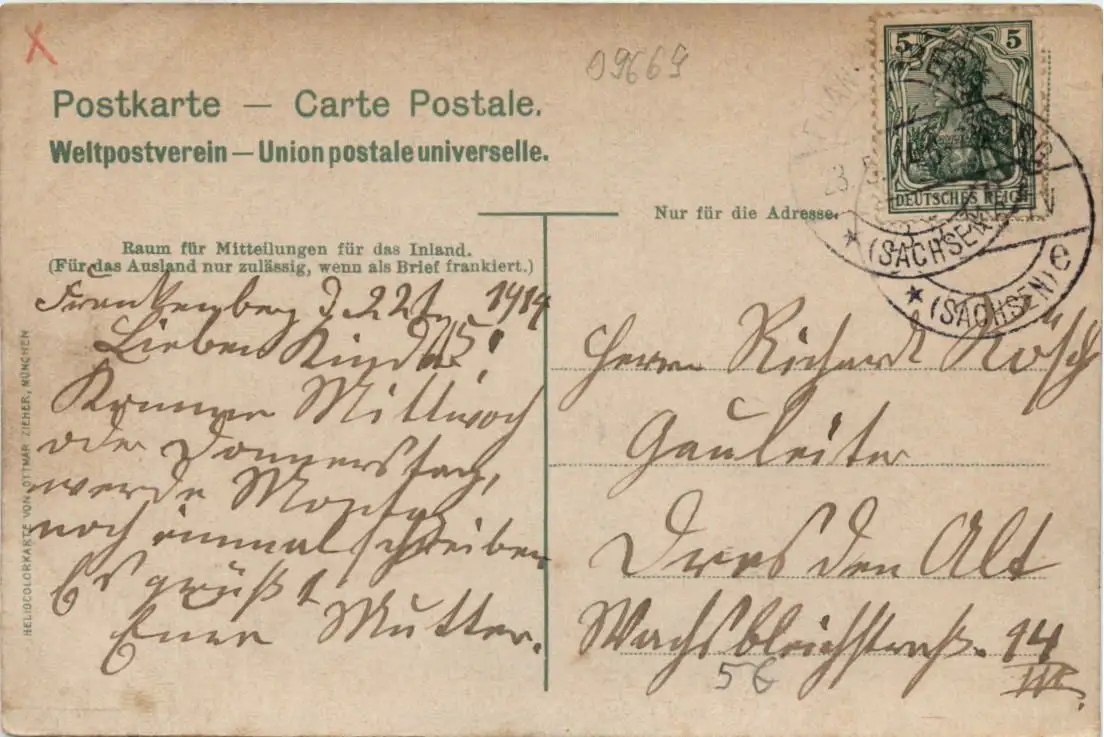 09669
Postkarte — Carte Postale.
Weltpostverein — Union postale universelle.
5 5
DEUTSCHES REICH
(SACHSEN)
(SACHSEN) e
Nur für die Adresse.
Raum für Mitteilungen für das Inland.
(Für das Ausland nur zulässig, wenn als Brief frankiert.)
Frankenberg d 22 1914
Lieben Kinder!
Komme Mittwoch
oder Donnerstag,
werde Montag
noch einmal schreiben
Es grüßt
Eure Mutter.
Herrn Richard
Gauleiter
Dresden Alt
Wachsbleichstraße 14
III.
5€
HELIOCOLORKARTE VON OTTMAR ZIEHER, MÜNCHEN